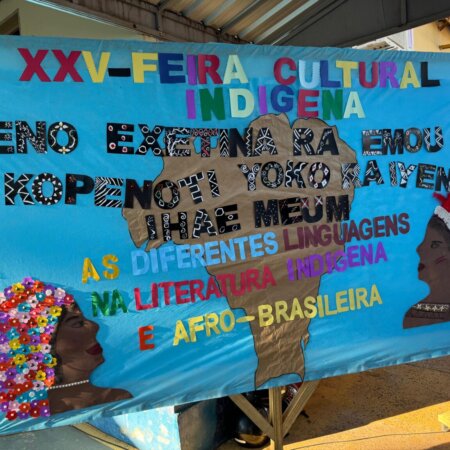 XXV-FEIRA CULTURAL
INDIGENA
ENO EXETINA RA EMOU
KOPENOTI YOKO RA IYEN
IHAE MEUM
AS DIFERENTES LINGUAGENS
NA LITERATURA INDIGENA
E AFRO-BRASILEIRA